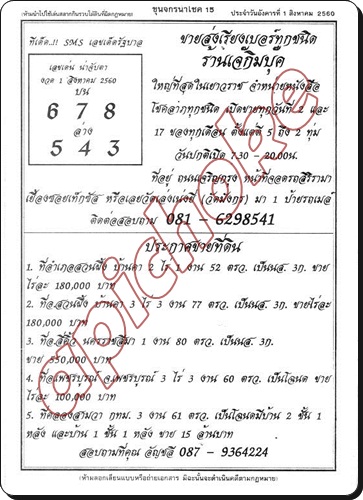 (ห้ามนำไปใช้เล่นสลากกินรวบไม่ยินดีผิดกฎหมาย)
ขุนจกรนำโชค 15
ประจำวันอังคารที่ 1 สิงหาคม 2560
ทีเด็ด..!! SMS เลขเด็ดรัฐบาล
เลขเด่น น่าจับตา
งวด 1 สิงหาคม 2560
บน
6 7 8
ล่าง
5 4 3
ขายส่งเรียงเบอร์ทุกชนิด
ร้านเจ๊กิมบุ๊ค
ใหญ่ที่สุดในเยาวราช จำหน่ายหนังสือ
โชคลาภทุกชนิด เปิดขายทุกวันที่ 2 และ
17 ของทุกเดือน ตั้งแต่ตี 5 ถึง 2 ทุ่ม
วันปกติเปิด 7.30 - 20.00น.
ที่อยู่ ถนนเจริญกรุง หน้าที่จอดรถสิริรามา
เยื้องซอยเท็กซัส หรือเลยวัดเล่งเน่ยยี่ (วัดมังกร) มา 1 ป้ายรถเมล์
ติดต่อสอบถาม 081 - 6298541
ประกาศขายที่ดิน
1. ที่อำเภอสวนผึ้ง บ้านคา 2 ไร่ 1 งาน 52 ตรว. เป็นนส. 3ก. ขาย
ไร่ละ 180,000 บาท
2. ที่อ.สวนผึ้ง บ้านคา 3 ไร่ 3 งาน 77 ตรว. เป็นนส. 3ก. ขายไร่ละ
180,000 บาท
3. ที่อ.สีคิ้ว นครราชสีมา 1 งาน 80 ตรว. เป็นนส. 3ก.
ขาย 350,000 บาท
4. ที่อ.เพชรบูรณ์ จ.เพชรบูรณ์ 3 ไร่ 3 งาน 60 ตรว. เป็นโฉนด ขาย
ไร่ละ 100,000 บาท
5. ที่คลองสามวา กทม. 3 งาน 61 ตรว. เป็นโฉนดมีบ้าน 2 ชั้น 1
หลัง และบ้าน 1 ชั้น 1 หลัง ขาย 15 ล้านบาท
สอบถามที่คุณ อัญชลี 087 - 9364224
(ห้ามลอกเลียนแบบหรือถ่ายเอกสาร มิฉะนั้นจะดำเนินคดีตามกฎหมาย)
apichoke